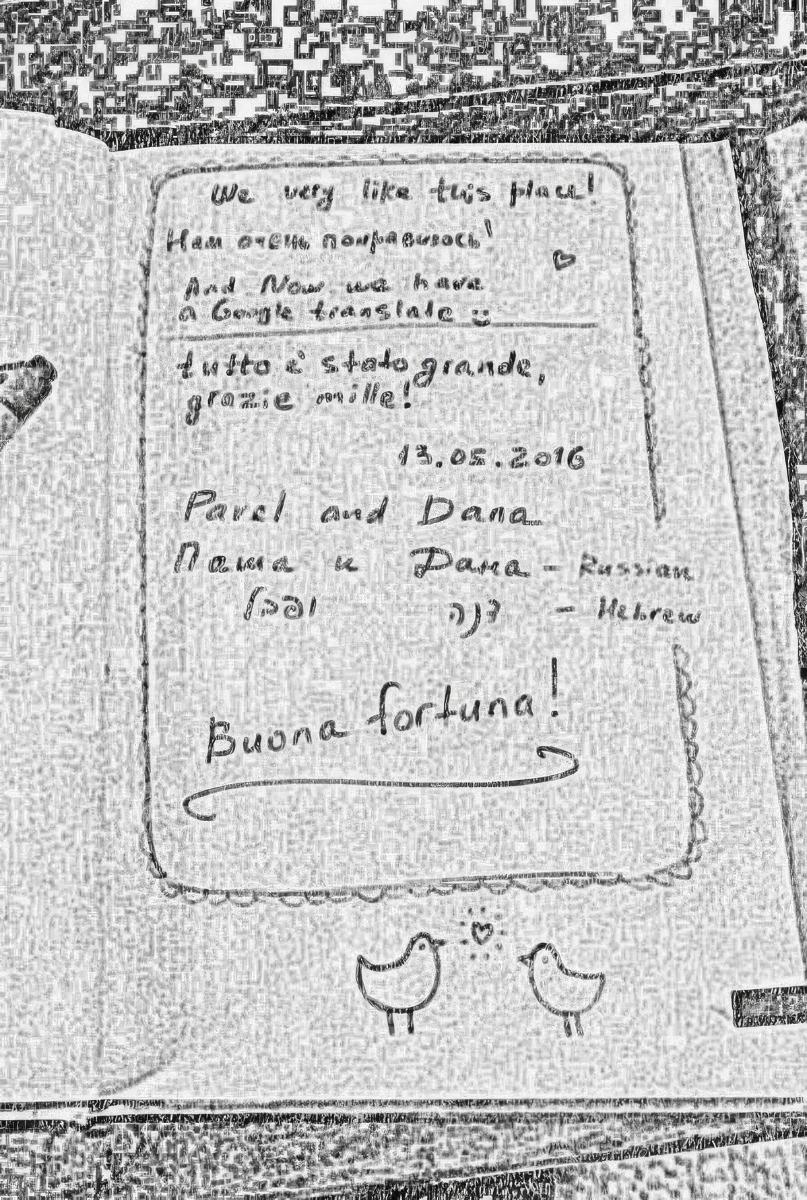 We very like this place!
Нам очень понравилось!
And Now we have
a Google translate
tutto è stato grande,
grazie mille!
13.05.2016
Pavel and Dana
Паша и Дана - Russian
דנה - Hebrew
Buona fortuna!